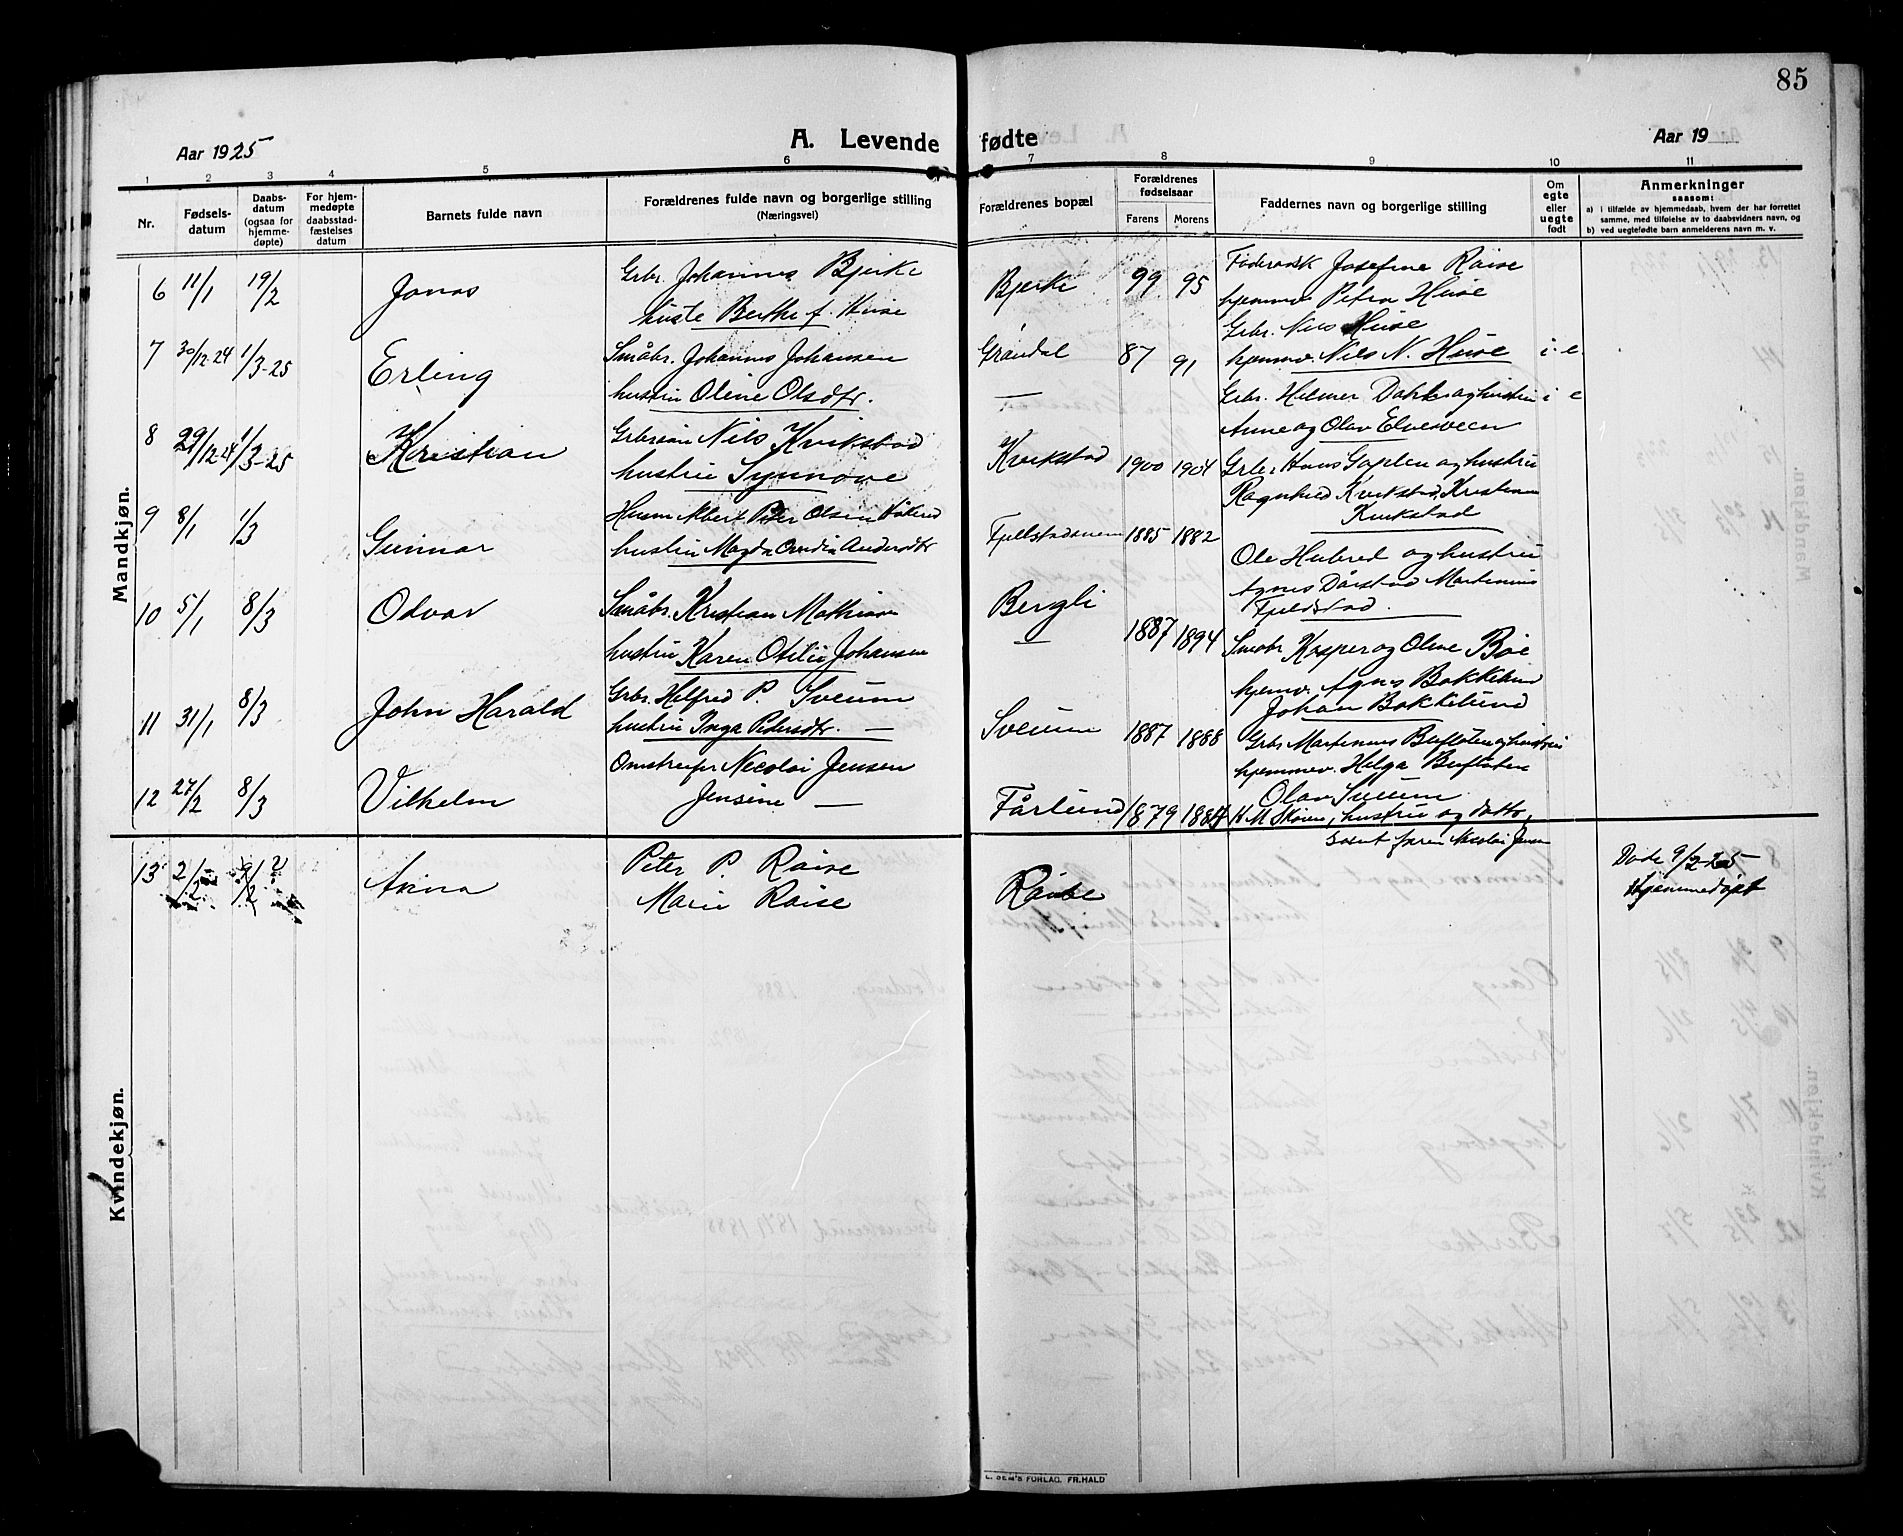 85
Aar 1925
A. Levende fødte
Aar 19
1 2 3 4 5 6 7 8 9 10 11
Nr.
Fødsels-
datum
Daabs-
datum
(ogsaa for
hjemme-
døpte)
For hjem-
medøpte
daabsstad-
fæstelses
datum
Barnets fulde navn
Forældrenes fulde navn og borgerlige stilling
(Næringsvei)
Forældrenes bopæl
Forældrenes
fødselsaar
Farens Morens
Faddernes navn og borgerlige stilling
Om
egte
eller
uegte
født
Anmerkninger
saasom:
a) i tilfælde av hjemmedaab, hvem der har forrettet
samme, med tilføielse av to daabsvidners navn, og
b) ved uegtefødte barn anmelderens navn m. v.
Mandkjøn.
6 11/1 19/2 Jonas
Grbr. Johannes Bjerke
huste Berthe f. Huse
Bjerke 99 95
Josefine Raise
hjemmv Petra Huse
Grbr. Nils Huse
7 30/12-24 1/3-25 Erling
Småbr. Johannes Johansen
hustru Oline Olsdtr.
Grøndal 87 91
hjemmv. Nils N. Huse i. e.
Grbr. Helmer Dakke og hustru i e
Anne og Olav Elveseveen
8 29/12-24 1/3-25 Kristian
Nils Kvikstad
hustru Synnøve
Kvikstad 1900 1904
Grbr. Hans Gaplen og hustru
Ragnhild Kvikstad, Kristian
Kvikstad
9 8/1 1/3 Gunnar
Husm Albert Peter Olsen
hustru Magda Andersdtr
1885 1882
Ole Hubred og hustru
Agnes Dårstad Martinius
Fjeldstad.
10 5/1 8/3 Odvar
Småbr. Kristian Mathisen
hustru Karen Otilie Johansen
Bergli 1887 1894
Småbr Kasper og Oline Bøe
hjemv. Agnes Bakkelund
Johan Bakkelund
11 31/1 8/3 John Harald
Grbr. Helfred P. Sveum
hustru Inga Pedersdtr. —
Sveum 1887 1888
Grbr Martinus Bufloten og hustru
hjemmev. Helga Bufloten
Olav Sveum
12 27/2 8/3 Vilhelm
Omstreifer Nicolai Jensen
Jensine —
Fårlund 1879 1884
K M Sköien, hustru og datter,
samt faren Nicolai Jensen
Kvindekjøn.
13 2/2 9/2 Anna
Peter P. Raise
Marie Raise
Raise
Døde 9/2-25
Hjemmedøpt
E. SEM'S FORLAG. FR.HALD